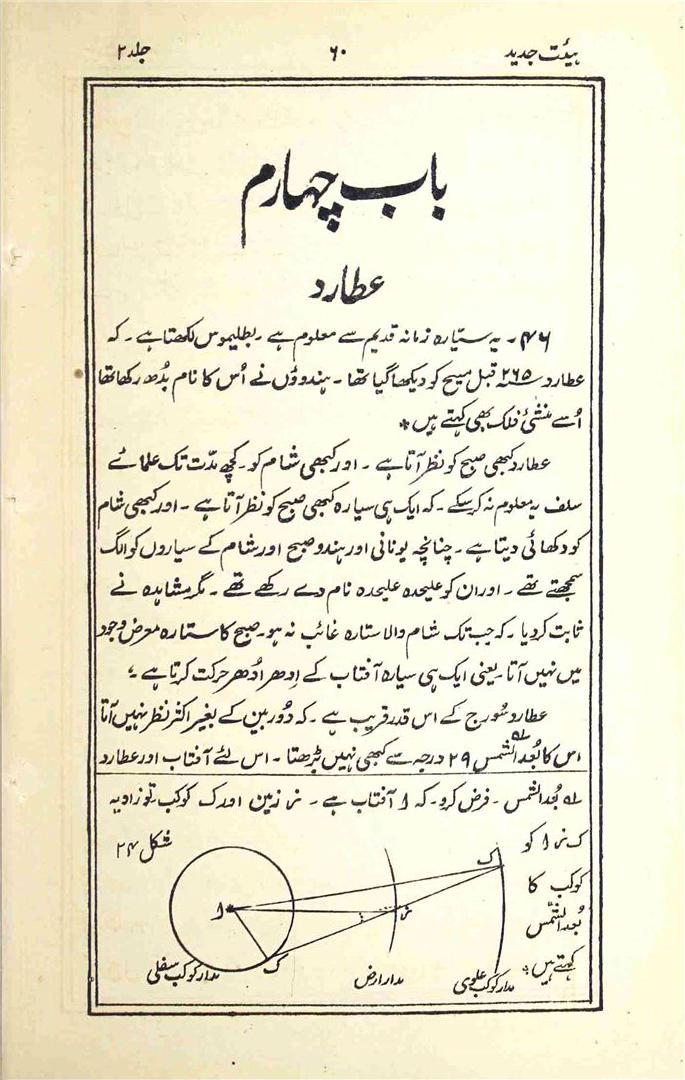 ہیئت جدید ۶۰ جلد ۲
باب چہارم
عطارد
۴۶ ۔ یہ ستیارہ زمانہ قدیم سے معلوم ہے ۔ بطلیموس لکھتا ہے ۔ کہ
عطارد ۲۶۵؁ قبل مسیح کو دیکھا گیا تھا ۔ ہندوؤں نے اُس کا نام بُدھ رکھا تھا
اُسے منشیٔ فلک بھی کہتے ہیں *
عطارد کبھی صبح کو نظر آتا ہے ۔ اور کبھی شام کو ۔ کچھ مدّت تک علمائے
سلف یہ معلوم نہ کر سکے ۔ کہ ایک ہی سیارہ کبھی صبح کو نظر آتا ہے ۔ اور کبھی شام
کو دکھائی دیتا ہے ۔ چنانچہ یونانی اور ہندو صبح اور شام کے سیاروں کو الگ
سمجھتے تھے ۔ اور ان کو علیحدہ علیحدہ نام دے رکھے تھے ۔ مگر مشاہدہ نے
ثابت کر دیا ۔ کہ جب تک شام والا ستارہ غائب نہ ہو ۔ صبح کا ستارہ معرض وجود
میں نہیں آتا ۔ یعنی ایک ہی سیارہ آفتاب کے اِدھر اُدھر حرکت کرتا ہے ؛
عطارد سُورج کے اس قدر قریب ہے ۔ کہ دُور بین کے بغیر اکثر نظر نہیں آتا
اس کا بُعد الشمس ۲۹ درجہ سے کبھی نہیں بڑھتا ۔ اس لئے آفتاب اور عطارد
بُعد الشمس ۔ فرض کرو ۔ کہ ا آفتاب ہے ۔ ز زمین اور ک کوکب تو زاویہ
ک ز ا کو
کوکب کا
بُعد الشمس
کہتے ہیں *
شکل ۲۴
ک
ا
ز
ک
مدار کوکب علوی
مدار ارض
مدار کوکب سفلی